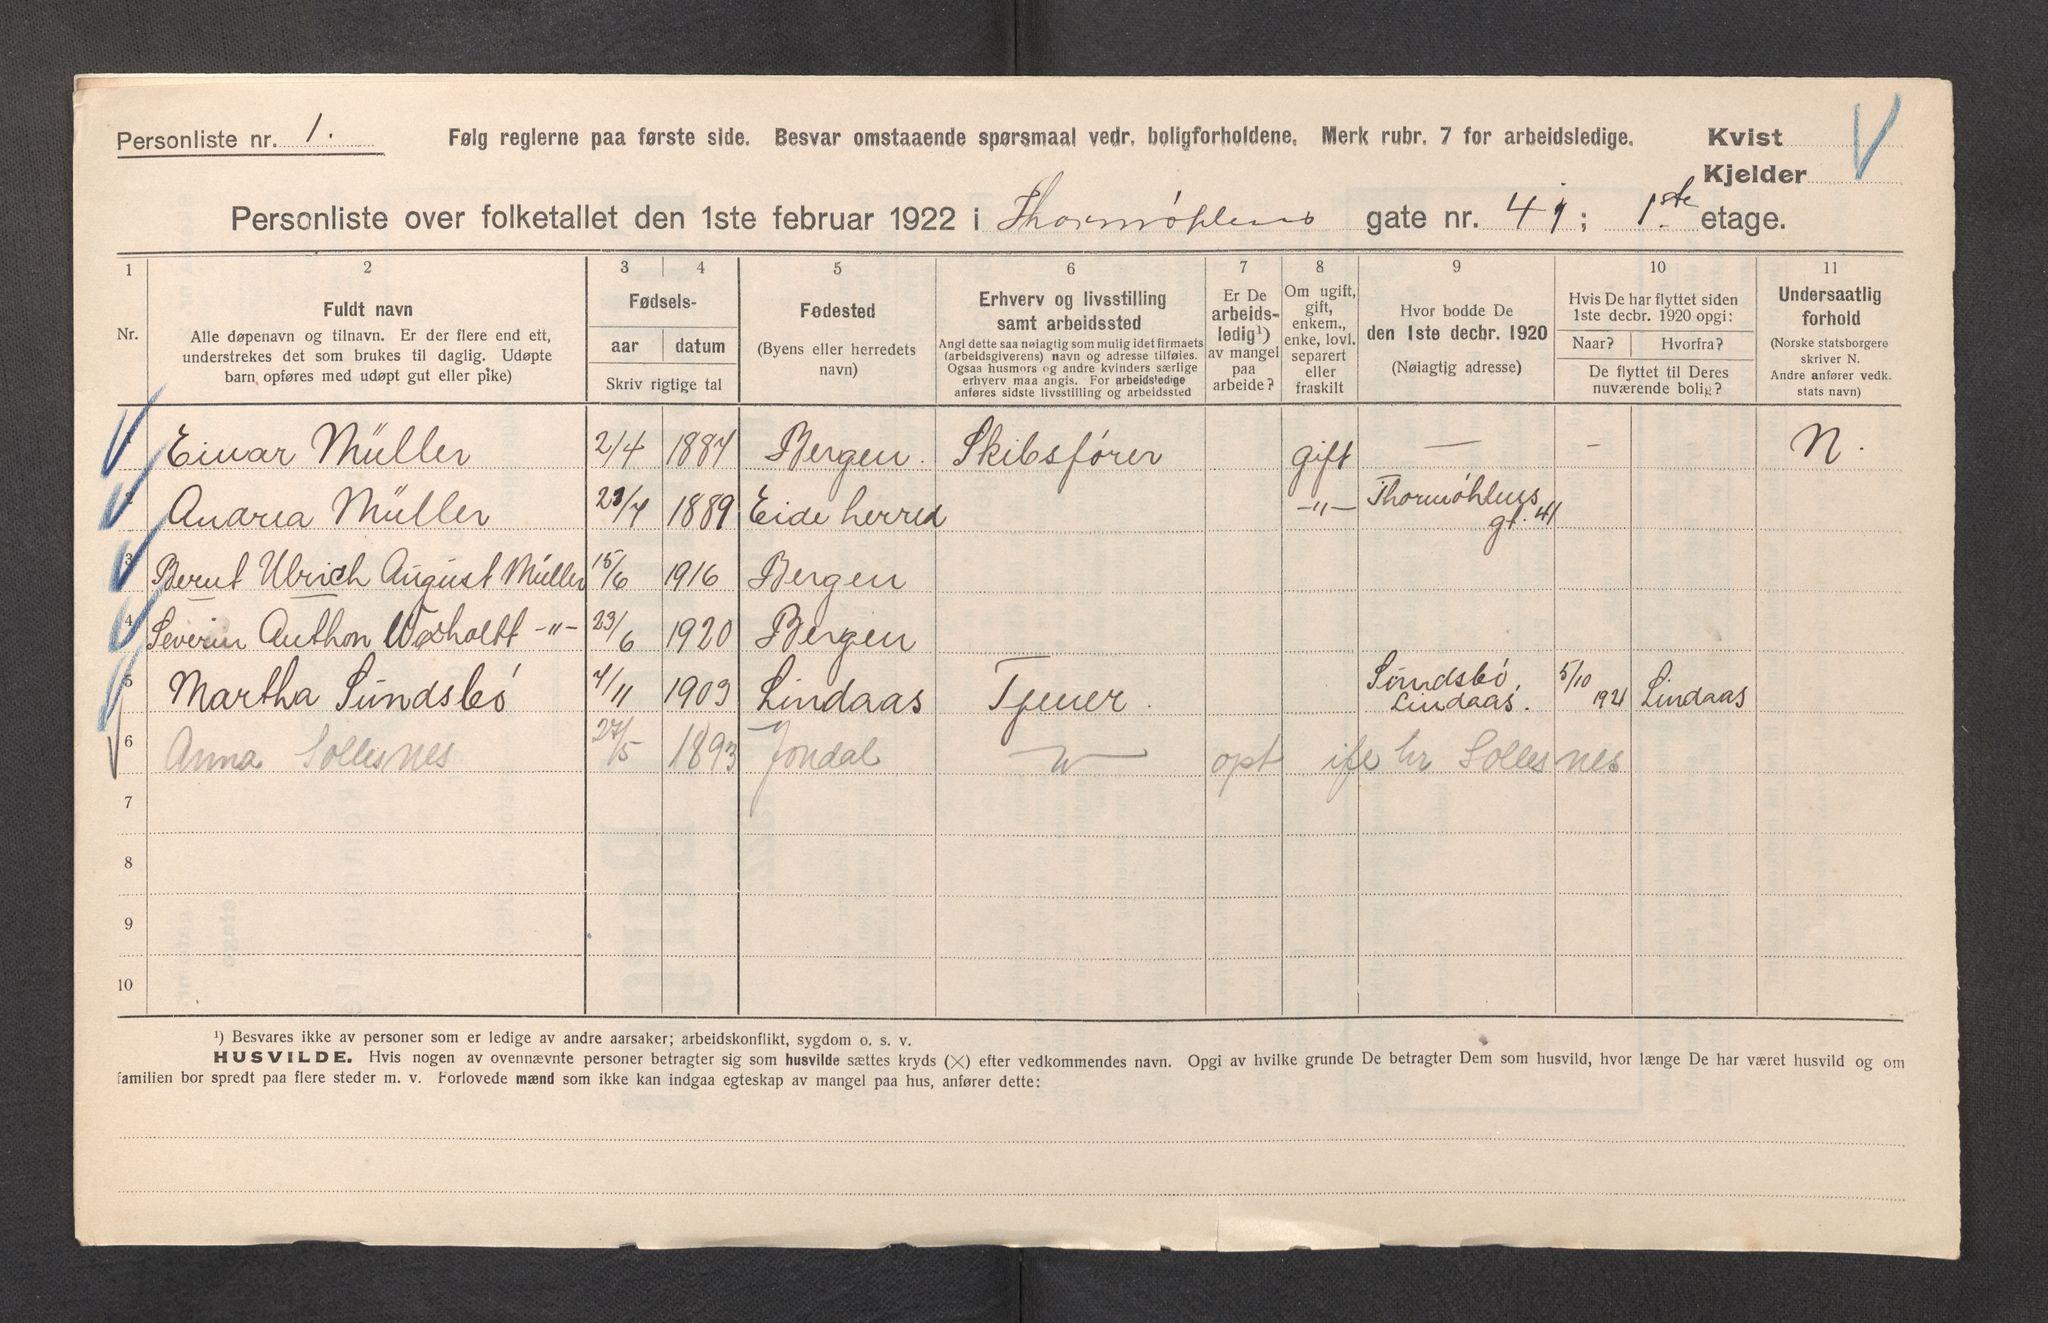 Personliste nr. 1.
Følg reglerne paa første side. Besvar omstaaende spørsmaal vedr. boligforholdene. Merk rubr. 7 for arbeidsledige.
Kvist
Kjelder
Personliste over folketallet den 1ste februar 1922 i Thormøhlens gate nr. 41; 1ste etage.
1 2 3 4 5 6 7 8 9 10 11
Nr.
Fuldt navn
Alle døpenavn og tilnavn. Er der flere end ett,
understrekes det som brukes til daglig. Udøpte
barn opføres med udøpt gut eller pike)
Fødsels-
aar datum
Skriv rigtige tal
Fødested
(Byens eller herredets
navn)
Erhverv og livsstilling
samt arbeidssted
Angi dette saa nøiagtig som mulig idet firmaets
(arbeidsgiverens) navn og adresse tilføies.
Ogsaa husmors og andre kvinders særlige
erhverv maa angis. For arbeidsledige
anføres sidste livsstilling og arbeidssted
Er De
arbeids-
ledig¹)
av mangel
paa
arbeide?
Om ugift,
gift,
enkem.,
enke, lovl.
separert
eller
fraskilt
Hvor bodde De
den 1ste decbr. 1920
(Nøiagtig adresse)
Hvis De har flyttet siden
1ste decbr. 1920 opgi:
Naar? Hvorfra?
De flyttet til Deres
nuværende bolig?
Undersaatlig
forhold
(Norske statsborgere
skriver N.
Andre anfører vedk.
stats navn)
1 Einar Müller 2/4 1887 Bergen. Skibsfører gift — – N.
2 Andrea Müller 23/7 1889 Eide herred -"- Thormøhlens
gt. 41
3 Bernt Ulrich August Müller 15/6 1916 Bergen
4 Severin Anthon Waxholtt -"- 23/6 1920 Bergen
5 Martha Sundsbó 7/11 1903 Lindaas Tjener. Sundsbó, Lindaas. 5/10 1921 Lindaas
6 Anna Sollesnes 27/5 1893 Jondal opt hr Sollesnes
7
8
9
10
¹) Besvares ikke av personer som er ledige av andre aarsaker; arbeidskonflikt, sygdom o. s. v.
HUSVILDE. Hvis nogen av ovennævnte personer betragter sig som husvilde sættes kryds (×) efter vedkommendes navn. Opgi av hvilke grunde De betragter Dem som husvild, hvor længe De har været husvild og om
familien bor spredt paa flere steder m. v. Forlovede mænd som ikke kan indgaa egteskap av mangel paa hus, anfører dette: